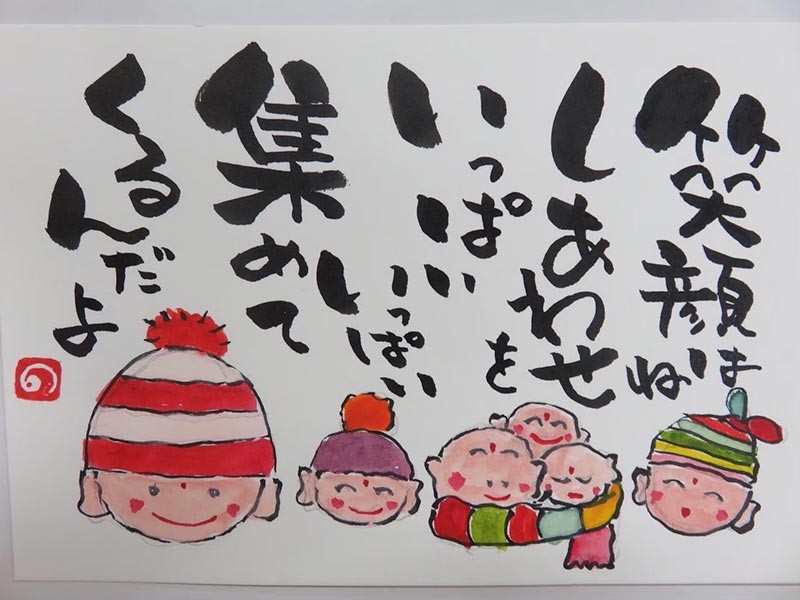 笑顔はね
しあわせを
いっぱい
いっぱい
集めて
くるんだよ
の